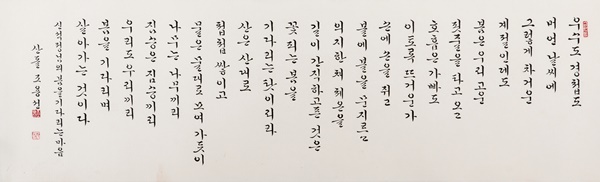 우수도 경칩도
머언 날씨에
그렇게 차거운
계절인데도
봄은 우리 고운
핏줄을 타고 오고
호흡은 가빠도
이토록 뜨거운가
손에 손을 쥐고
볼에 볼을 문지르고
의지한 채 체온을
길이 간직하고픈 것은
꽃 피는 봄을
기다리는 탓이리라
산은 산대로
첩첩 쌓이고
물은 물대로 모여 가듯이
나무는 나무끼리
짐승은 짐승끼리
우리도 우리끼리
봄을 기다리며
살아가는 것이다
신석정님의 봄을 기다리는 마음